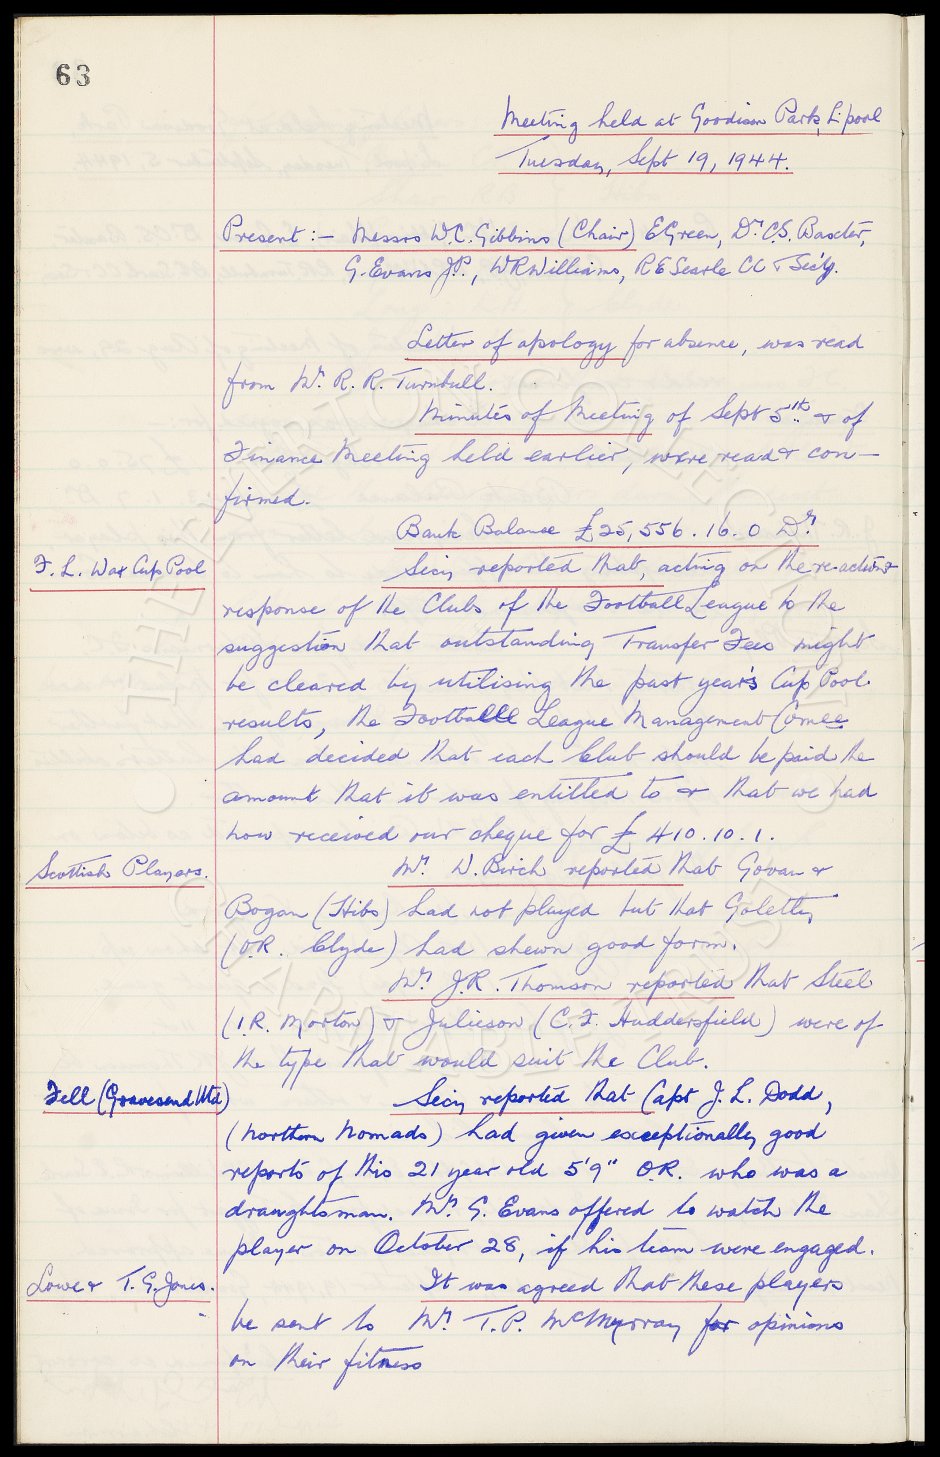 63
Meeting held at Goodison Park, L'pool
Tuesday, Sept 19, 1944.
Present :- Messrs W.C. Gibbins (Chair) E Green, Dr. C.S. Baxter,
G. Evans J.P., W R Williams, R E Searle CC & Sec'y.
Letter of apology for absence, was read
from Mr. R. R. Turnbull.
Minutes of Meeting of Sept 5th & of
Finance Meeting held earlier, were read & con-
firmed.
Bank Balance £25,556.16.0 Dr.
F. L. War Cup Pool
Secy reported that, acting on the re-action &
response of the Clubs of the Football League to the
suggestion that outstanding Transfer Fees might
be cleared by utilising the past year's Cup Pool
results, the Football League Management Comee
had decided that each Club should be paid the
amount that it was entitled to & that we had
now received our cheque for £410.10.1.
Scottish Players.
Mr. W. Birch reported that Govan &
Bogan (Hibs) had not played but that Goletty
(O.R. Clyde) had shewn good form.
Mr. J.R. Thomson reported that Steel
(I.R. Morton) & Julieson (C.F. Huddersfield) were of
the type that would suit the Club.
Fell (Gravesend Utd)
Secy reported that Capt J. L. Dodd,
(Northern Nomads) had given exceptionally good
reports of this 21 year old 5'9" O.R. who was a
draughtsman. Mr. G. Evans offered to watch the
player on October 28, if his team were engaged.
Lowe & T. G. Jones.
It was agreed that these players
be sent to Mr. T. P. McMurray for opinions
on their fitness
THE EVERTON COLLECTION
CHARITABLE TRUST